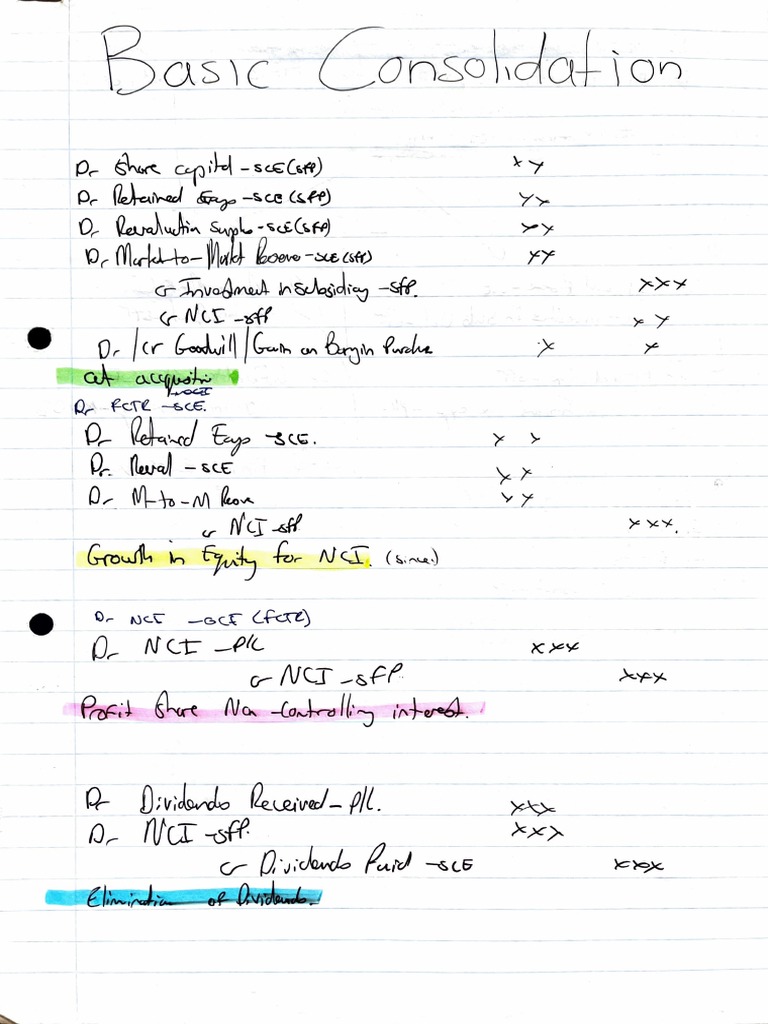 Basic Consolidation
Dr Share capital - SCE (SFP) xy
Dr Retained Eags - SCE (SFP) yx
Dr Revaluation Surplus - SCE (SFP) xy
Dr Market-to-Markt Reserve - SCE (SFP) xy
Cr Investment in Subsidiary - SFP. xxx
Cr NCI - SFP x y
Dr / Cr Goodwill / Gain on Bargin Purchase x x
at acquisition
Dr FCTR - SCE.
Dr Retained Eags - SCE. x x
Dr. Reval - SCE xx
Dr M-to-M Reserve xy
Cr NCI - SFP xxx.
Growth in Equity for NCI. (since.)
Dr NCI - OCI (FCTR)
Dr NCI - P/L xxx
Cr NCI - SFP. xxx
Profit Share Non-Controlling interest.
Dr Dividends Received - P/L. xxx
Dr NCI - SFP. xxx
Cr Dividends Paid - SCE xxx
Elimination of Dividends.